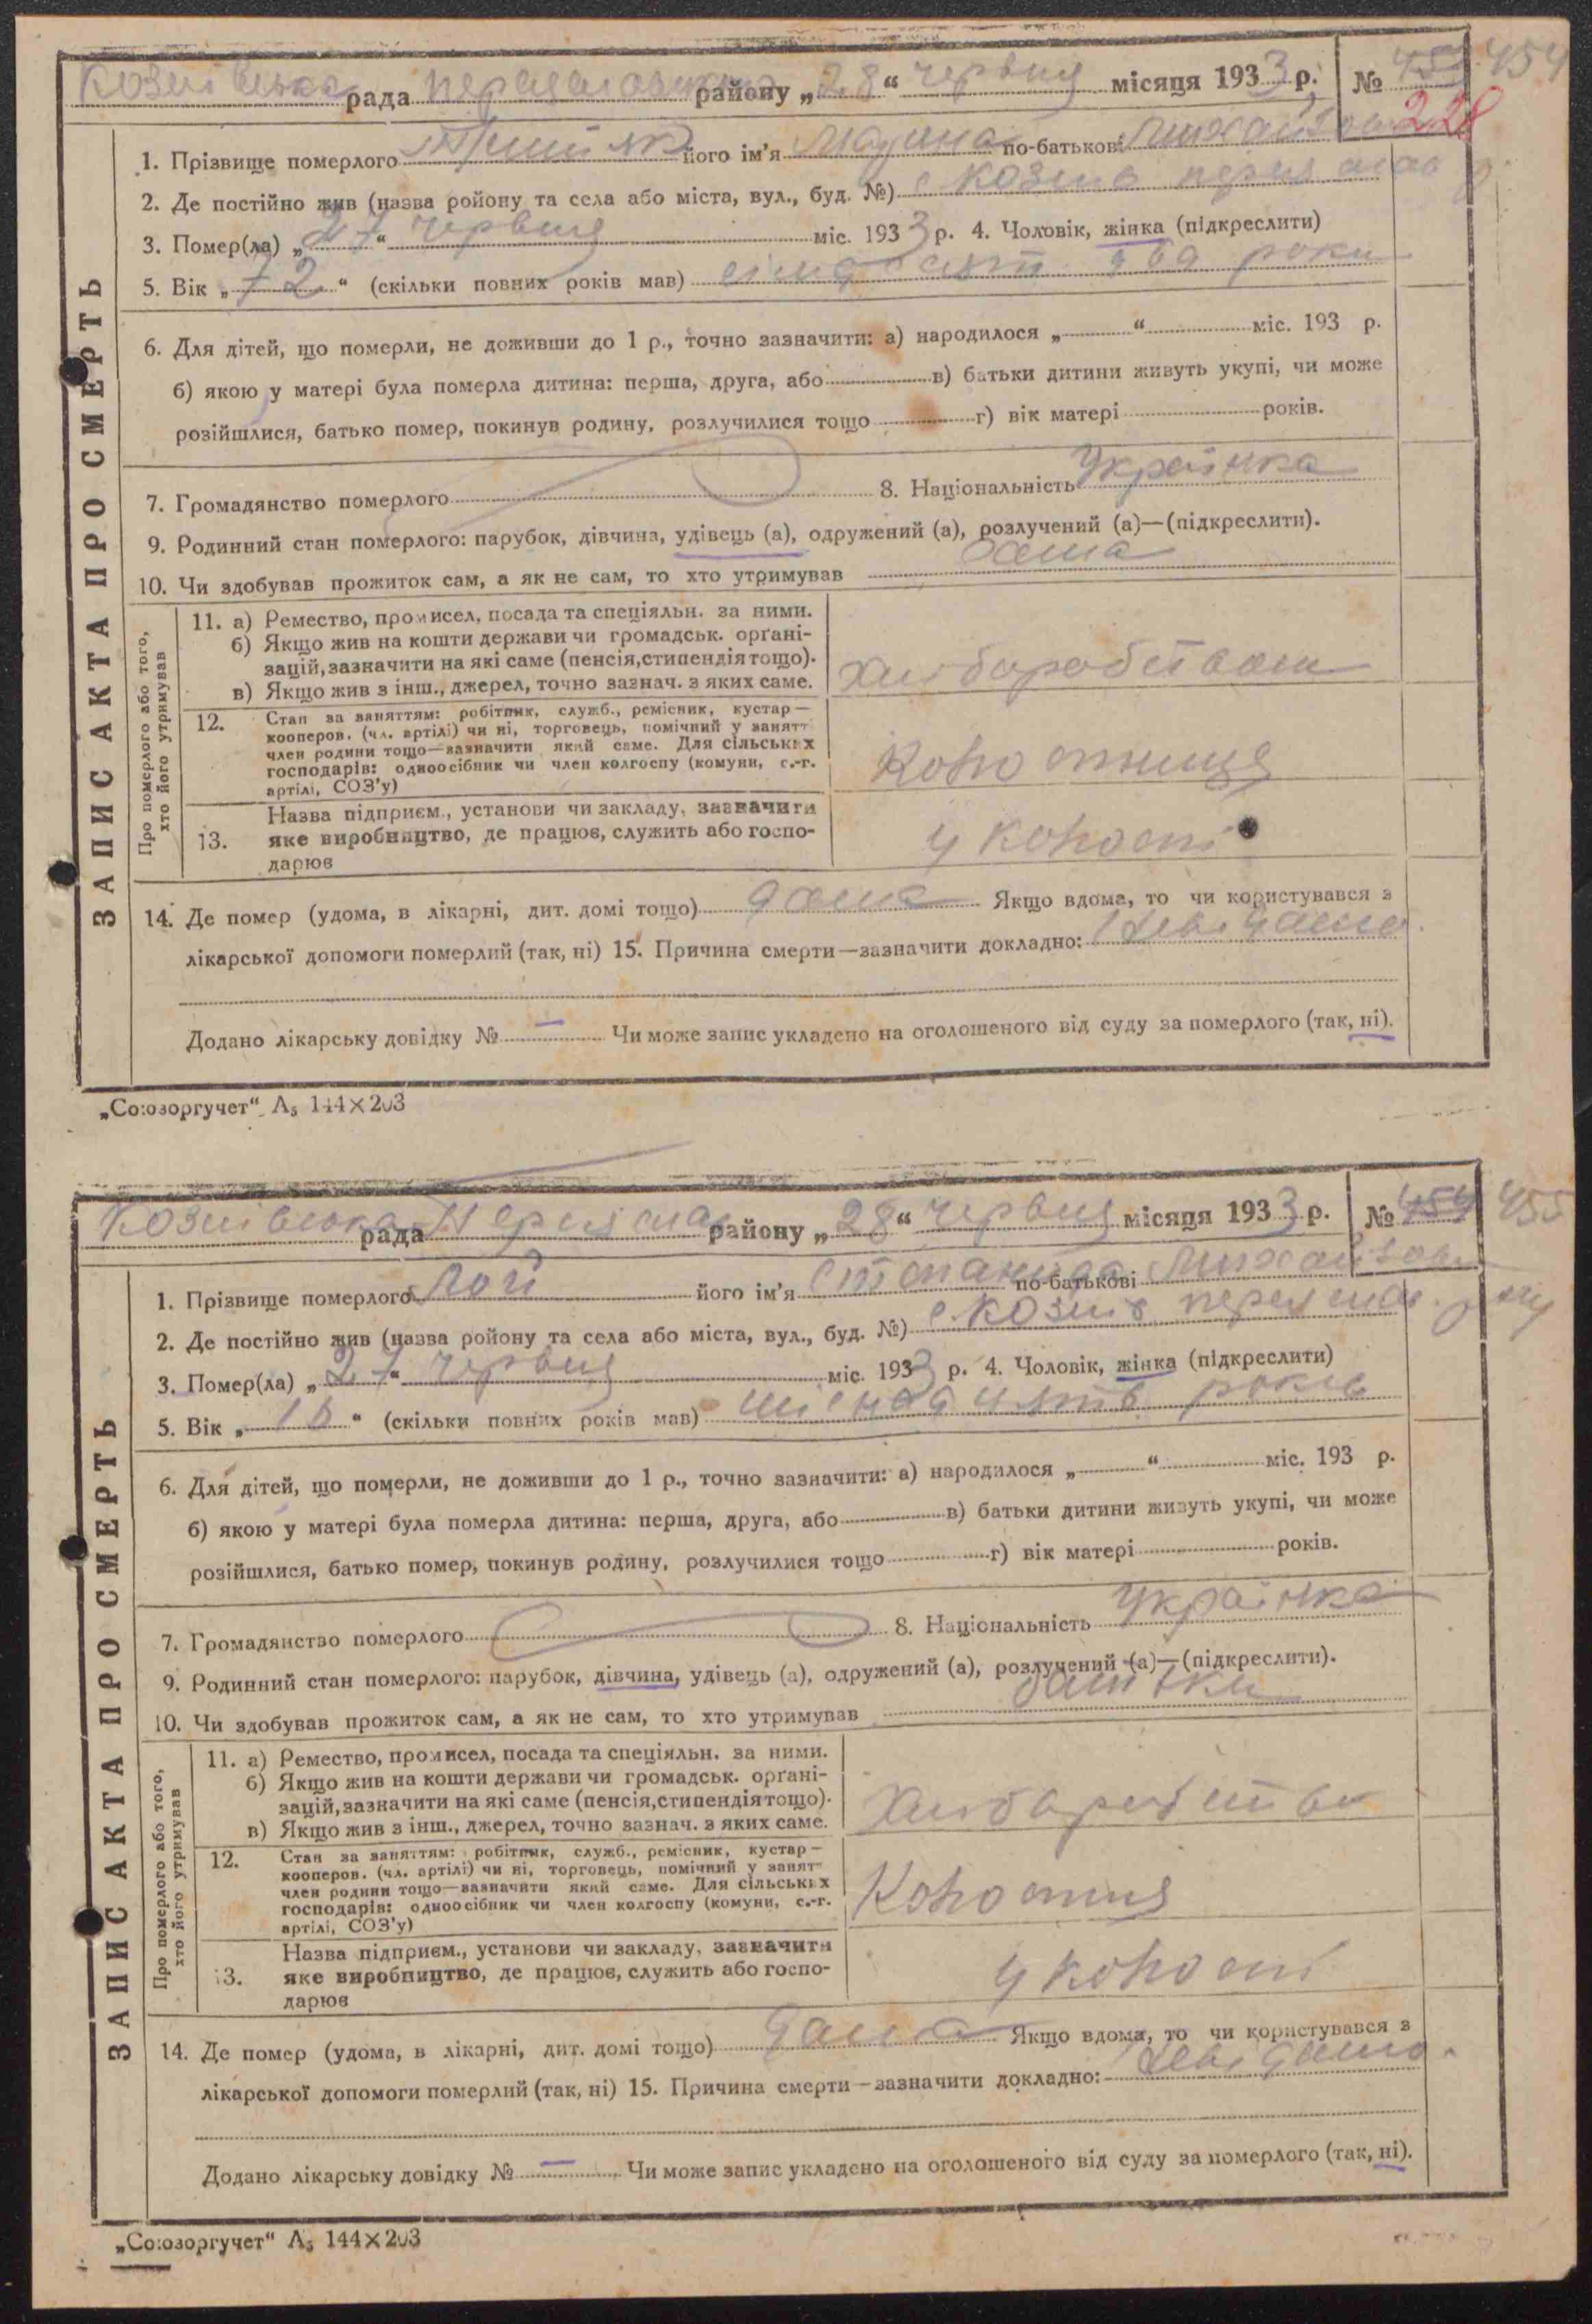 Козлівська рада Переяславський району „28“ червня місяця 1933 р. № 454
228
ЗАПИС АКТА ПРО СМЕРТЬ
1. Прізвище померлого його ім'я по-батькові Михайлов
2. Де постійно жив (назва ройону та села або міста, вул., буд. №) с Козлів переяслав р.
3. Помер(ла) „27“ червня міс. 1933 р. 4. Чоловік, жінка (підкреслити)
5. Вік „72“ (скільки повних років мав) сімдесят два роки
6. Для дітей, що померли, не доживши до 1 р., точно зазначити: а) народилося „ “ міс. 193 р.
б) якою у матері була померла дитина: перша, друга, або в) батьки дитини живуть укупі, чи може
розійшлися, батько помер, покинув родину, розлучилися тощо г) вік матері років.
7. Громадянство померлого 8. Національність Українка
9. Родинний стан померлого: парубок, дівчина, удівець (а), одружений (а), розлучений (а)—(підкреслити).
10. Чи здобував прожиток сам, а як не сам, то хто утримував сама
Про померлого або того,
хто його утримував
11. а) Ремество, промисел, посада та спеціяльн. за ними.
б) Якщо жив на кошти держави чи громадськ. орґані-
зацій, зазначити на які саме (пенсія, стипендія тощо).
в) Якщо жив з інш., джерел, точно зазнач. з яких саме.
Хліборобством
12. Стан за заняттям: робітник, служб., ремісник, кустар—
кооперов. (чл. артілі) чи ні, торговець, помічний у занятт
член родини тощо—зазначити який саме. Для сільських
господарів: одноосібник чи член колгоспу (комуни, с.-г.
артілі, СОЗ'у)
13. Назва підприєм., установи чи закладу, зазначити
яке виробництво, де працює, служить або госпо-
дарює
у колгоспі
14. Де помер (удома, в лікарні, дит. домі тощо) дома Якщо вдома, то чи користувався з
лікарської допомоги померлий (так, ні) 15. Причина смерти—зазначити докладно: Невідомо.
Додано лікарську довідку № — Чи може запис укладено на оголошеного від суду за померлого (так, ні).
„Союзоргучет“ А₅ 144×203
Козлівська рада Переяслав району „28“ червня місяця 1933 р. № 454 455
ЗАПИС АКТА ПРО СМЕРТЬ
1. Прізвище померлого Лой його ім'я Степанида по-батькові Михайлов
2. Де постійно жив (назва ройону та села або міста, вул., буд. №) с. Козлів переяслав. р-ну
3. Помер(ла) „27“ червня міс. 1933 р. 4. Чоловік, жінка (підкреслити)
5. Вік „16“ (скільки повних років мав) шіснадцять років
6. Для дітей, що померли, не доживши до 1 р., точно зазначити: а) народилося „ “ міс. 193 р.
б) якою у матері була померла дитина: перша, друга, або в) батьки дитини живуть укупі, чи може
розійшлися, батько помер, покинув родину, розлучилися тощо г) вік матері років.
7. Громадянство померлого 8. Національність Українка
9. Родинний стан померлого: парубок, дівчина, удівець (а), одружений (а), розлучений (а)—(підкреслити).
10. Чи здобував прожиток сам, а як не сам, то хто утримував батьки
Про померлого або того,
хто його утримував
11. а) Ремество, промисел, посада та спеціяльн. за ними.
б) Якщо жив на кошти держави чи громадськ. орґані-
зацій, зазначити на які саме (пенсія, стипендія тощо).
в) Якщо жив з інш., джерел, точно зазнач. з яких саме.
12. Стан за заняттям: робітник, служб., ремісник, кустар—
кооперов. (чл. артілі) чи ні, торговець, помічний у занят
член родини тощо—зазначити який саме. Для сільських
господарів: одноосібник чи член колгоспу (комуни, с.-г.
артілі, СОЗ'у)
13. Назва підприєм., установи чи закладу, зазначити
яке виробництво, де працює, служить або госпо-
дарює
у колгоспі
14. Де помер (удома, в лікарні, дит. домі тощо) дома Якщо вдома, то чи користувався з
лікарської допомоги померлий (так, ні) 15. Причина смерти—зазначити докладно: Невідомо.
Додано лікарську довідку № — Чи може запис укладено на оголошеного від суду за померлого (так, ні).
„Союзоргучет“ А₅ 144×203